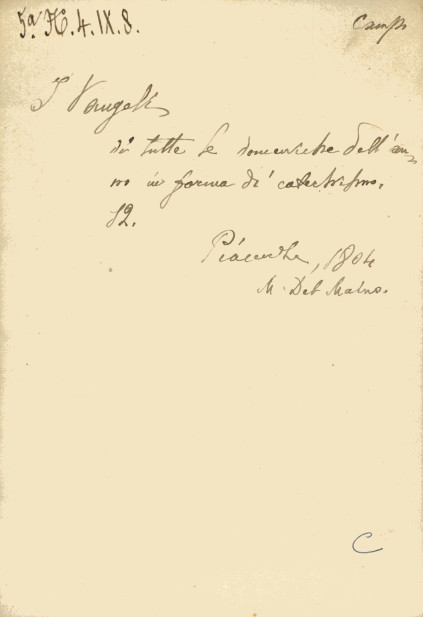 5ª H. 4. IX. 8.
Camp
I Vangeli
di tutte le domeniche dell'an-
no in forma di catechismo.
12.
Piacenza, 1804
M. Del Maino.
C